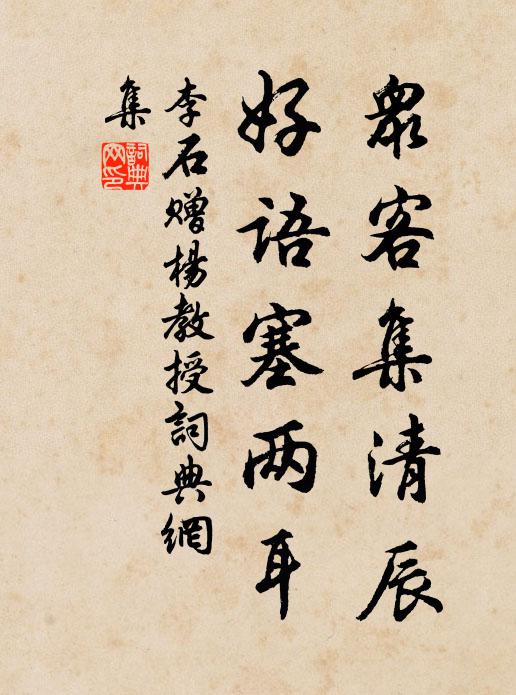 眾客集清辰
好語塞两耳
李石贈楊教授詞典網
集
詞典網印